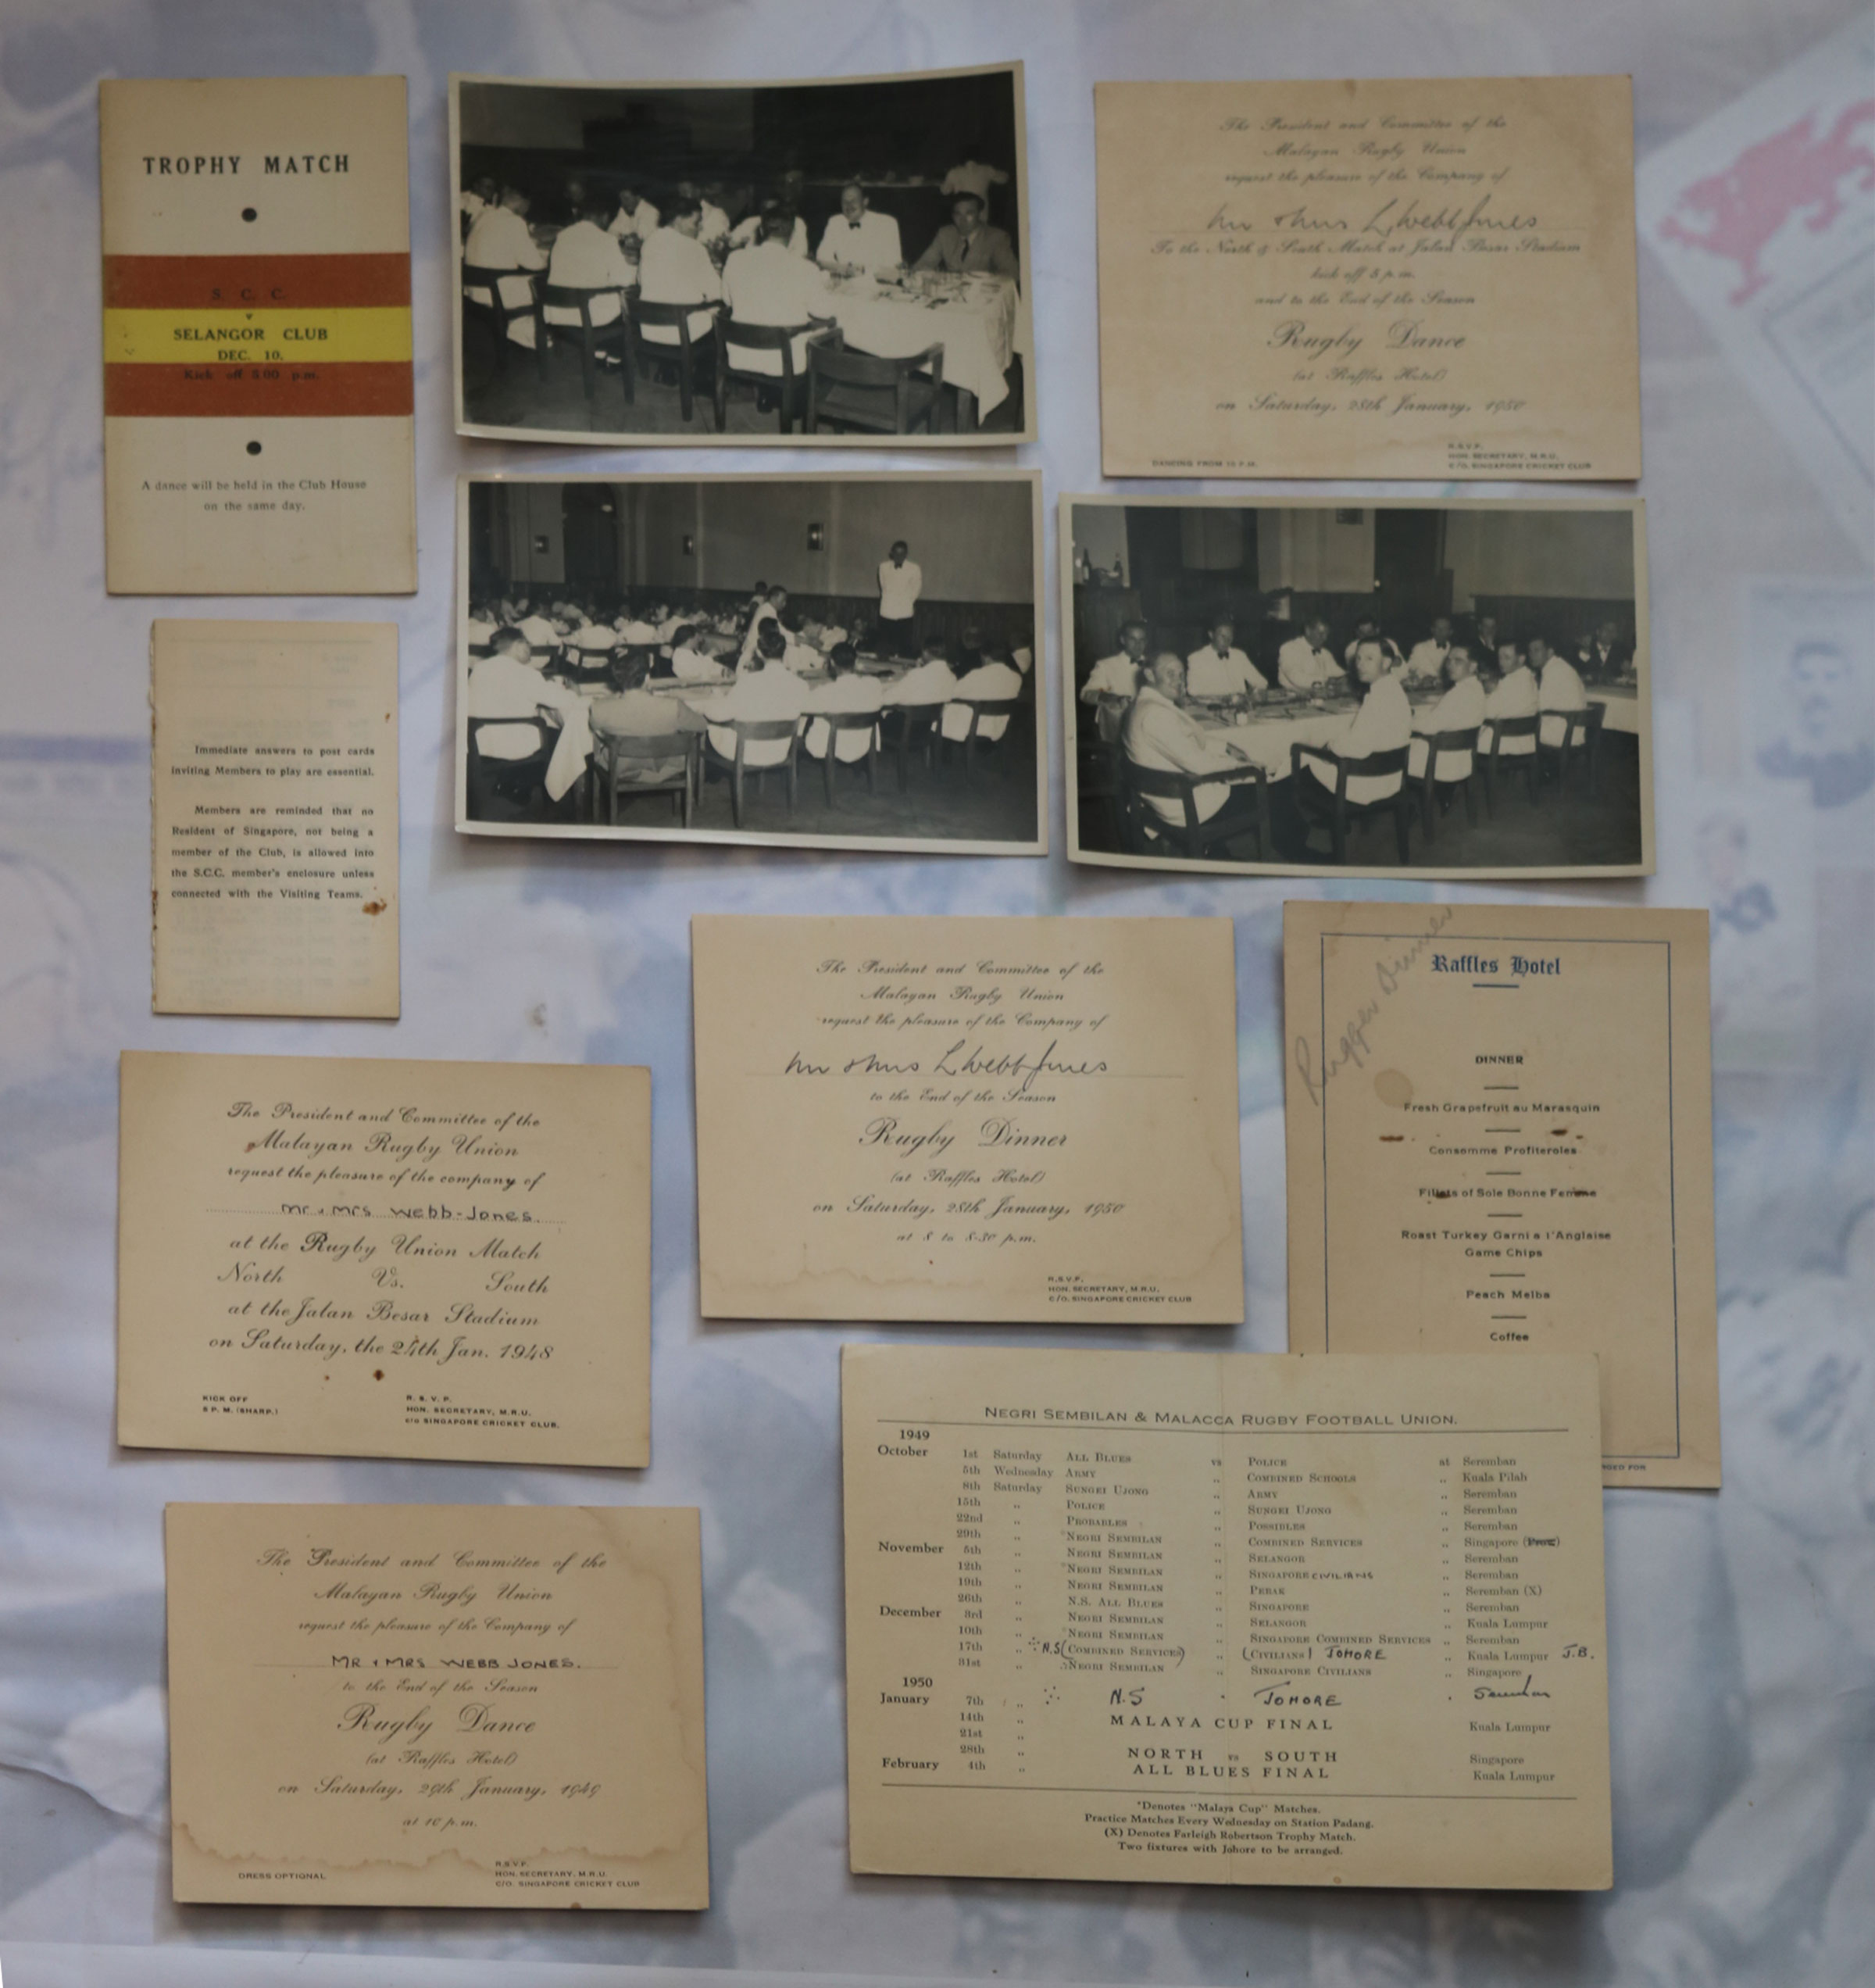 TROPHY MATCH
S. C. C.
v
SELANGOR CLUB
DEC. 10.
Kick off 5.00 p.m.
A dance will be held in the Club House
on the same day.
The President and Committee of the
Malayan Rugby Union
request the pleasure of the Company of
Mr & Mrs L Webb Jones
To the North & South Match at Jalan Besar Stadium
kick off 5 p.m.
and to the End of the Season
Rugby Dance
(at Raffles Hotel)
on Saturday, 28th January, 1950
DANCING FROM 10 P.M.
R.S.V.P.
HON. SECRETARY, M.R.U.
C/O. SINGAPORE CRICKET CLUB
Immediate answers to post cards
inviting Members to play are essential.
Members are reminded that no
Resident of Singapore, not being a
member of the Club, is allowed into
the S.C.C. member's enclosure unless
connected with the Visiting Teams.
The President and Committee of the
Malayan Rugby Union
request the pleasure of the Company of
Mr & Mrs L Webb Jones
to the End of the Season
Rugby Dinner
(at Raffles Hotel)
on Saturday, 28th January, 1950
at 8 to 8-30 p.m.
R.S.V.P.
HON. SECRETARY, M.R.U.
C/O. SINGAPORE CRICKET CLUB
Rugger Dinner
Raffles Hotel
DINNER
Fresh Grapefruit au Marasquin
Consomme Profiteroles
Fillets of Sole Bonne Femme
Roast Turkey Garni a l'Anglaise
Game Chips
Peach Melba
Coffee
FOR
The President and Committee of the
Malayan Rugby Union
request the pleasure of the company of
Mr & Mrs Webb-Jones.
at the Rugby Union Match
North Vs. South
at the Jalan Besar Stadium
on Saturday, the 24th Jan. 1948
KICK OFF
5 P. M. (SHARP.)
R. S. V. P.
HON. SECRETARY, M.R.U.
c/o SINGAPORE CRICKET CLUB.
The President and Committee of the
Malayan Rugby Union
request the pleasure of the Company of
MR & MRS WEBB JONES.
to the End of the Season
Rugby Dance
(at Raffles Hotel)
on Saturday, 29th January, 1949
at 10 p.m.
DRESS OPTIONAL
R.S.V.P.
HON. SECRETARY, M.R.U.
C/O. SINGAPORE CRICKET CLUB
NEGRI SEMBILAN & MALACCA RUGBY FOOTBALL UNION.
1949
October 1st Saturday ALL BLUES vs POLICE at Seremban
5th Wednesday ARMY ,, COMBINED SCHOOLS ,, Kuala Pilah
8th Saturday SUNGEI UJONG ,, ARMY ,, Seremban
15th ,, POLICE ,, SUNGEI UJONG ,, Seremban
22nd ,, PROBABLES ,, POSSIBLES ,, Seremban
29th ,, *NEGRI SEMBILAN ,, COMBINED SERVICES ,, Singapore
November 5th ,, NEGRI SEMBILAN ,, SELANGOR ,, Seremban
12th ,, *NEGRI SEMBILAN ,, SINGAPORE CIVILIANS ,, Seremban
19th ,, NEGRI SEMBILAN ,, PERAK ,, Seremban (X)
26th ,, N.S. ALL BLUES ,, SINGAPORE ,, Seremban
December 3rd ,, NEGRI SEMBILAN ,, SELANGOR ,, Kuala Lumpur
10th ,, *NEGRI SEMBILAN ,, SINGAPORE COMBINED SERVICES ,, Seremban
17th ,, N.S (COMBINED SERVICES) ,, (CIVILIANS) JOHORE ,, Kuala Lumpur J.B.
31st ,, NEGRI SEMBILAN ,, SINGAPORE CIVILIANS ,, Singapore
1950
January 7th ,, N.S JOHORE Seremban
14th ,, MALAYA CUP FINAL Kuala Lumpur
21st ,,
28th ,, NORTH vs SOUTH Singapore
February 4th ,, ALL BLUES FINAL Kuala Lumpur
*Denotes "Malaya Cup" Matches.
Practice Matches Every Wednesday on Station Padang.
(X) Denotes Farleigh Robertson Trophy Match.
Two fixtures with Johore to be arranged.